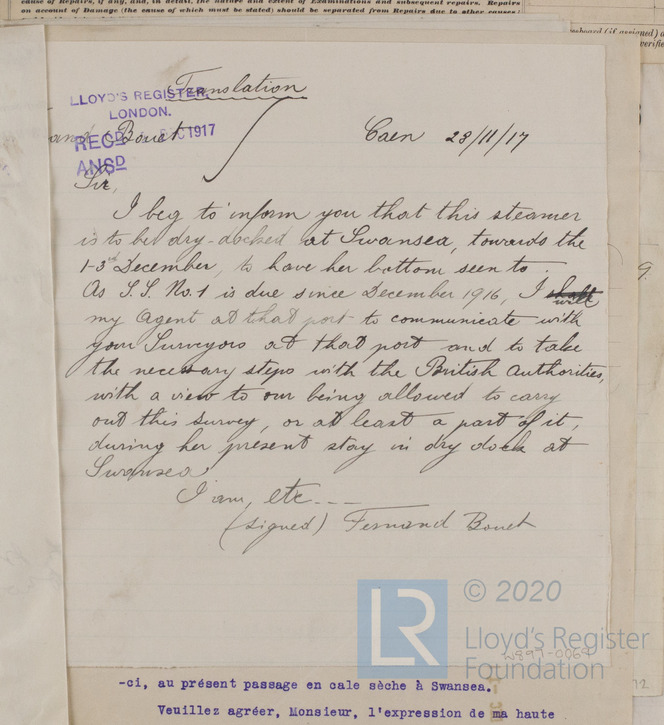 cause of Repairs, if any, and, in detail, the nature and extent of Examinations and subsequent repairs. Repairs
on account of Damage (the cause of which must be stated) should be separated from Repairs due to other causes
(if assigned)
Translation
LLOYD'S REGISTER,
LONDON.
and Bouet
REC'D 1917
ANSD
Caen 28/11/17
Sir,
I beg to inform you that this steamer
is to be dry-docked at Swansea, towards the
1-3rd December, to have her bottom seen to.
As S.S. No. 1 is due since December 1916, I
will
my agent at that port to communicate with
your Surveyors at that port and to take
the necessary steps with the British Authorities,
with a view to our being allowed to carry
out this survey, or at least a part of it,
during her present stay in dry dock at
Swansea
I am, etc ---
(signed) Fernand Bouet
9.
LR
© 2020
Lloyd's Register
Foundation
W897-0069
72
-ci, au présent passage en cale sèche à Swansea.
Veuillez agréer, Monsieur, l'expression de ma haute